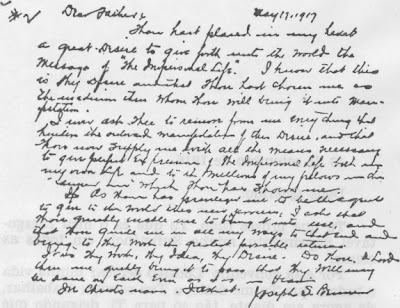 Dear Father:- May 17, 1917
Thou hast placed in my heart
a great Desire to give forth unto the World the
Message of "The Impersonal Life". I know that this
is Thy Desire and that Thou hast chosen me as
the medium thru whom Thou will bring it into Mani-
festation.
I now ask Thee to remove from me everything that
hinders the outward manifestation of this Desire, and that
Thou now supply me with all the means necessary
to give perfect Expression to the Impersonal Life both in
my own life and to the Millions of my fellows in the
manner in which Thou has shown me.
If Thou has privileged me to be the agent
to give to the World this new, I ask that
Thou quickly enable me to bring it into use, and
that Thou guide me in all my ways to that end and
bring to Thy Work the greatest possible returns.
It is Thy Work, Thy Idea, Thy Desire. Do Thou, O Lord
thru me quickly bring it to pass, that Thy Will may
be done on Earth as in Heaven.
In Christ's name. I ask it. Joseph S. Benner